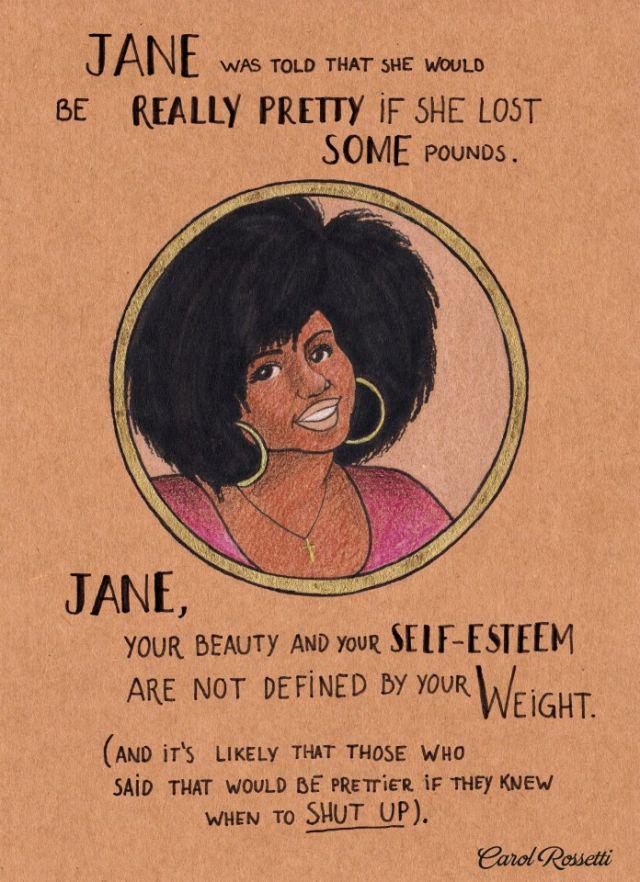 JANE WAS TOLD THAT SHE WOULD
BE REALLY PRETTY iF SHE LOST
SOME POUNDS.
JANE,
YOUR BEAUTY AND YOUR SELF-ESTEEM
ARE NOT DEFINED BY YOUR WEiGHT.
(AND iT'S LIKELY THAT THOSE WHO
SAiD THAT WOULD BE PRETTiER iF THEY KNEW
WHEN TO SHUT UP).
Carol Rossetti